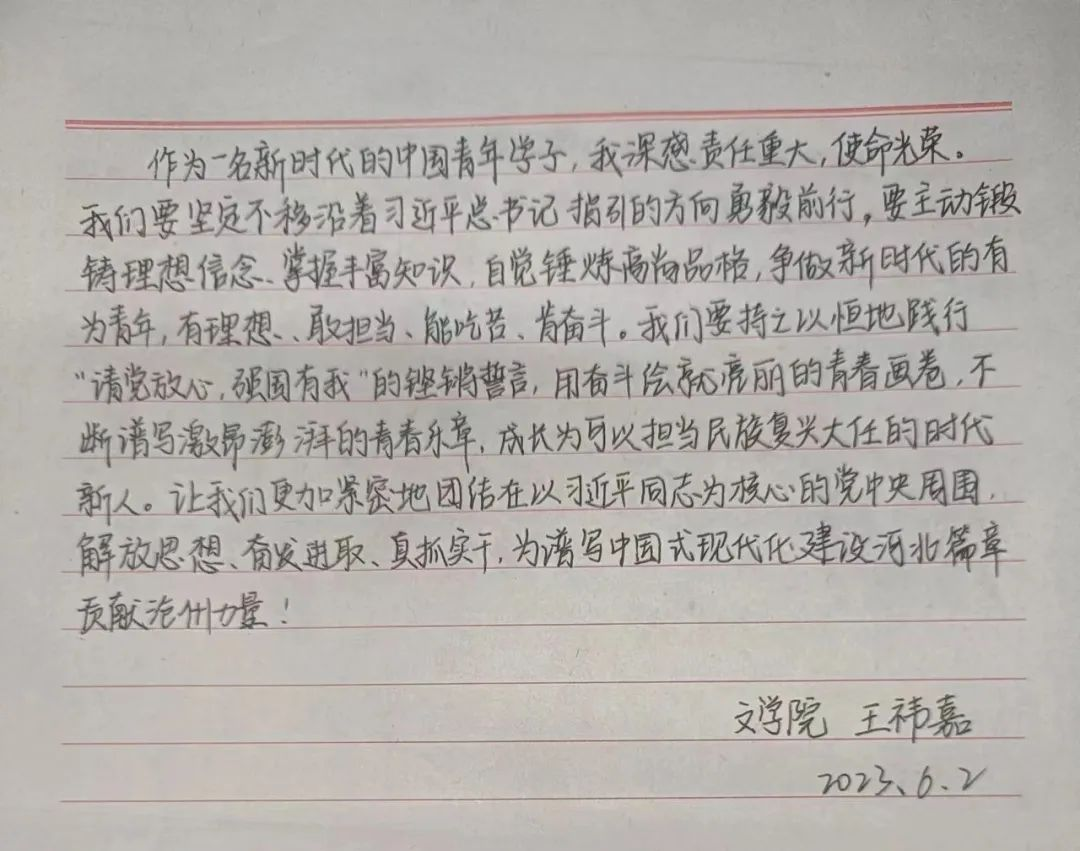 作为一名新时代的中国青年学子，我深感责任重大，使命光荣。
我们要坚定不移沿着习近平总书记指引的方向勇毅前行，要主动锻
铸理想信念、掌握丰富知识，自觉锤炼高尚品格，争做新时代的有
为青年，有理想、敢担当、能吃苦、肯奋斗。我们要持之以恒地践行
“请党放心，强国有我”的铿锵誓言，用奋斗绘就亮丽的青春画卷，不
断谱写激昂澎湃的青春乐章，成长为可以担当民族复兴大任的时代
新人。让我们更加紧密地团结在以习近平同志为核心的党中央周围，
解放思想、奋发进取、真抓实干，为谱写中国式现代化建设河北篇章
贡献沧州力量！
文学院 王祎嘉
2023.6.2